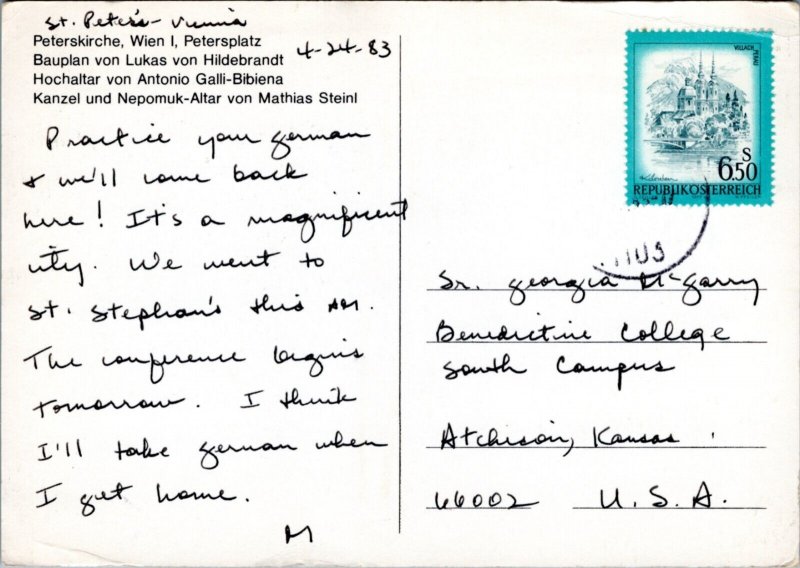 St. Peter's - Vienna
Peterskirche, Wien I, Petersplatz
4-24-83
Bauplan von Lukas von Hildebrandt
Hochaltar von Antonio Galli-Bibiena
Kanzel und Nepomuk-Altar von Mathias Steinl
Practice your german
& we'll come back
here! It's a magnificent
city. We went to
St. Stephan's this AM.
The conference begins
tomorrow. I think
I'll take german when
I get home.
M
VILLACH, PERAU
S
6.50
REPUBLIK ÖSTERREICH
Sr. Georgia McGarry
Benedictine College
South Campus
Atchison, Kansas
66002 U.S.A.